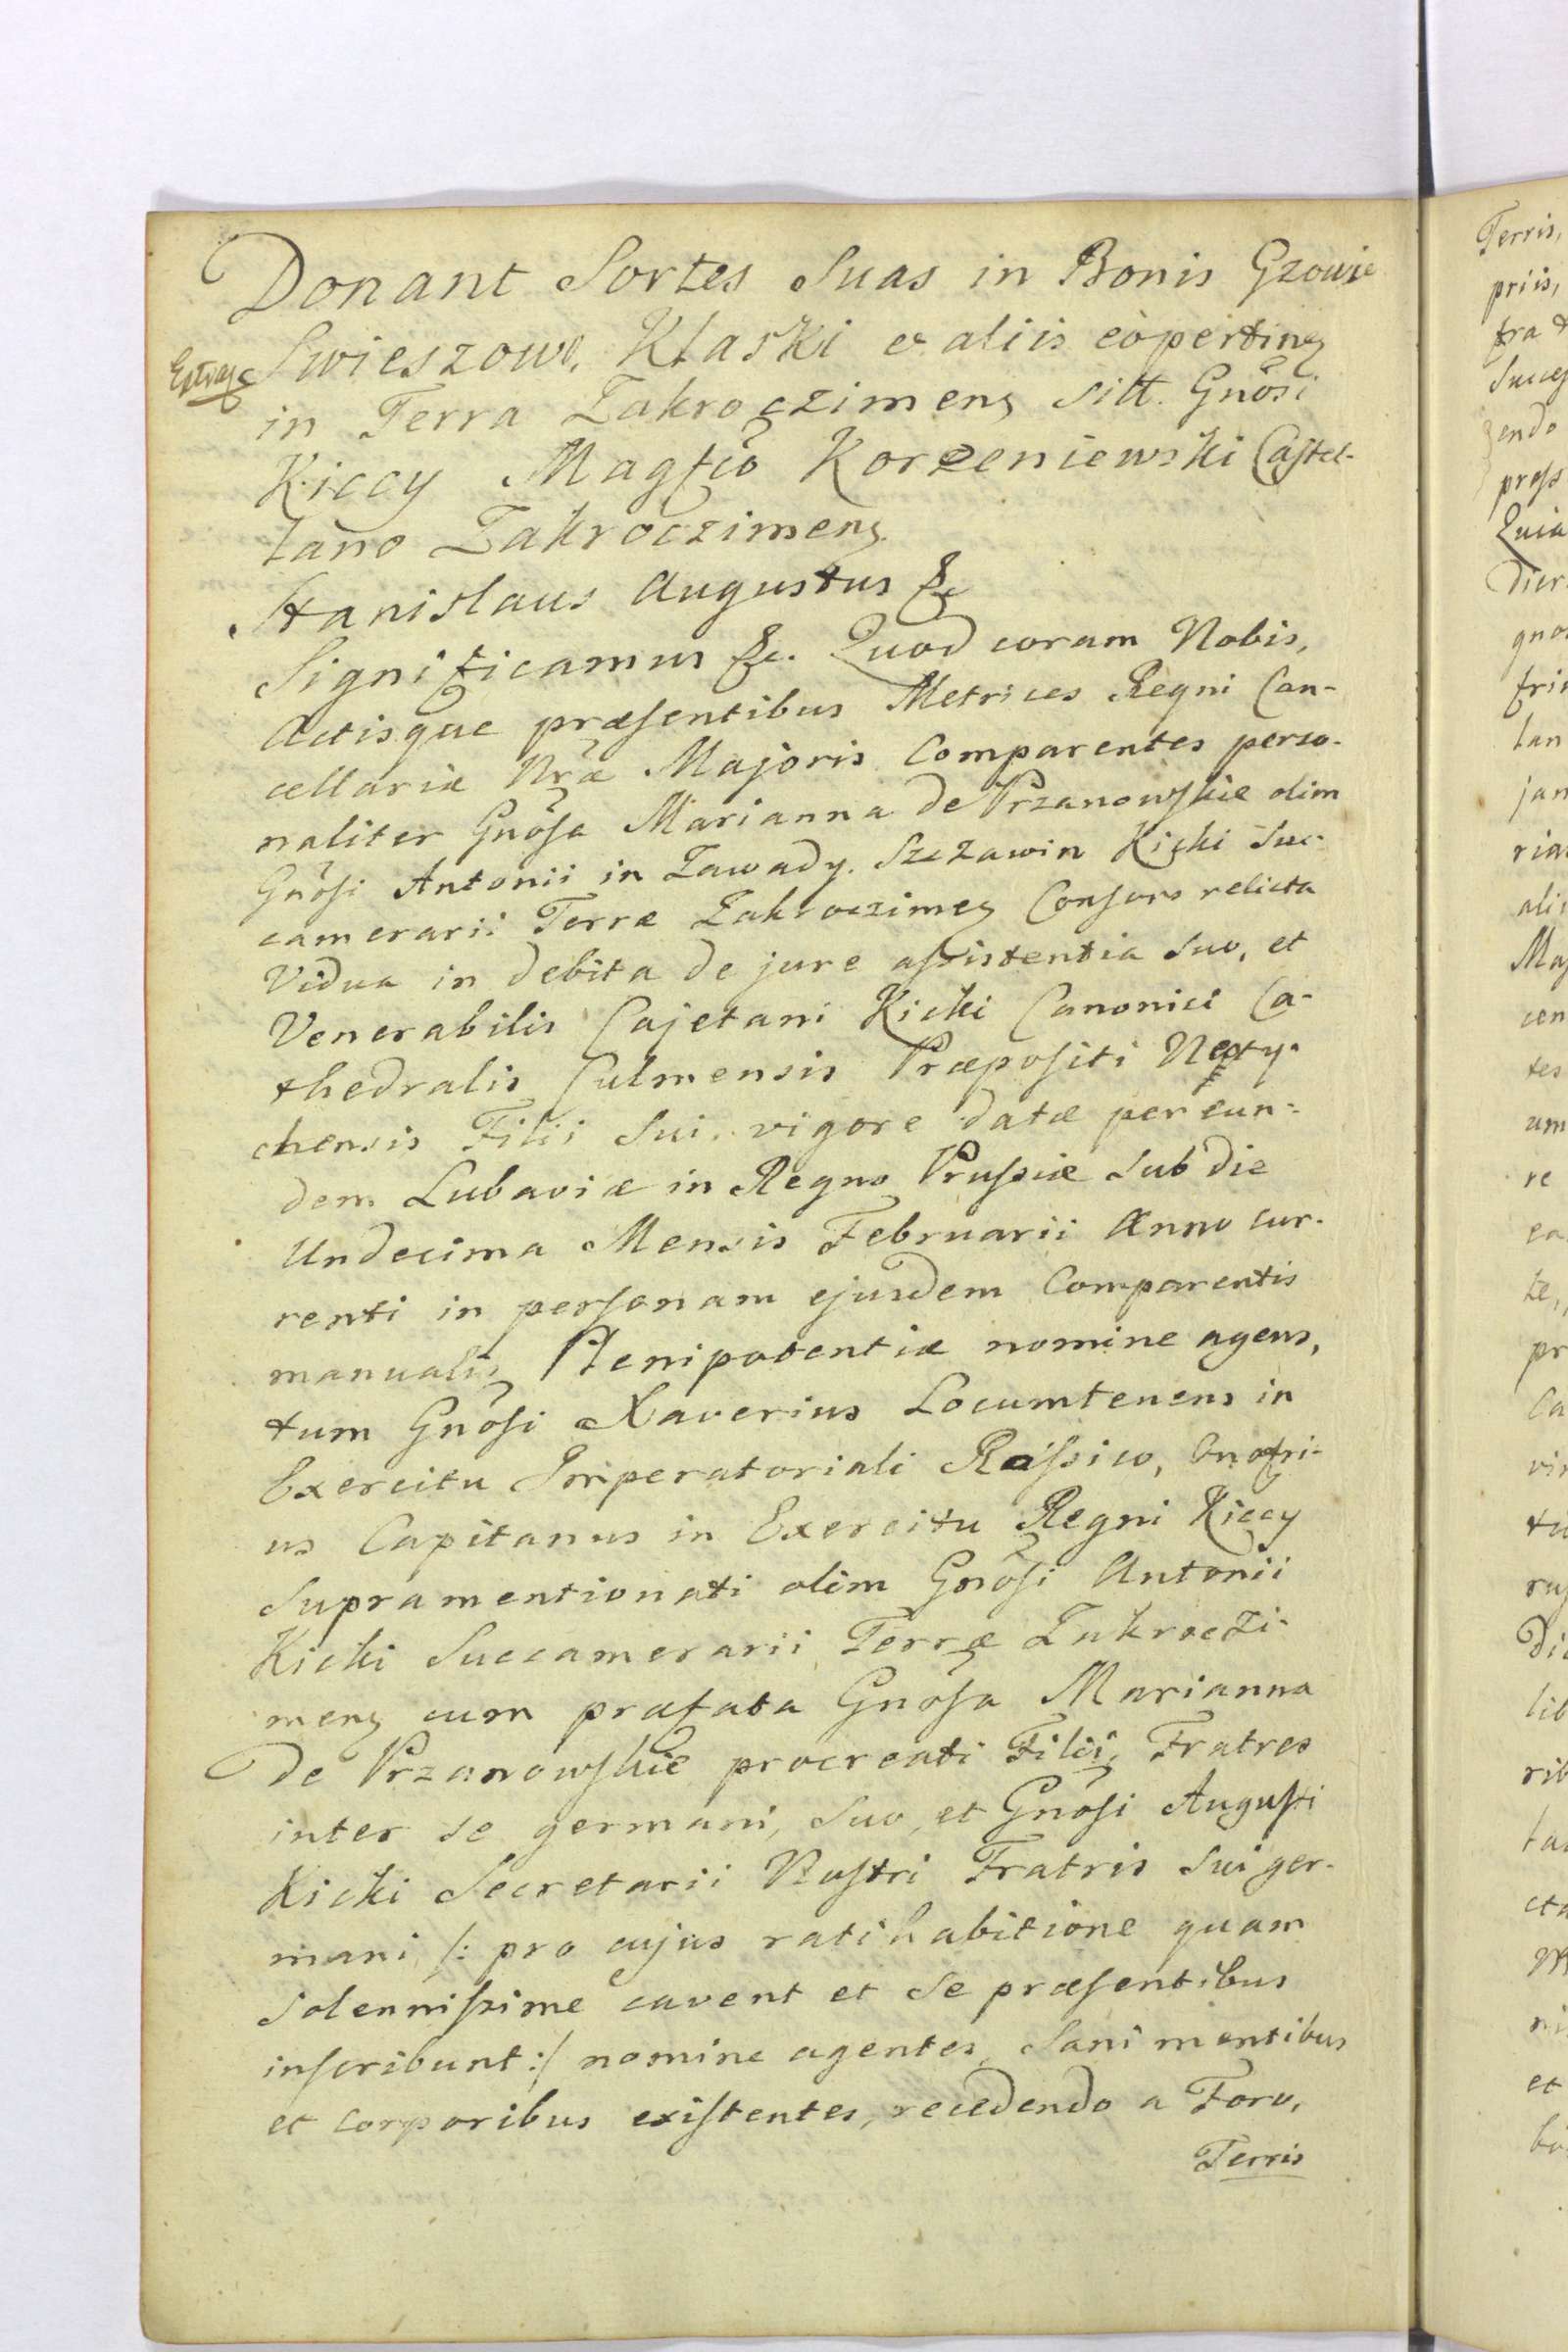 Donant Sortes Suas in Bonis Gzowie
Swieszowo, Klaski & aliis eòpertinen
in Terra Zakroczimens sitt. Gnosi
Kiccy Magfco Korzeniewski Castel-
lano Zakroczimens
Stanislaus Augustus &c
Significamus &c. Quod coram Nobis,
Actisque præsentibus Metrices Regni Can-
cellariæ Nræ Majoris Comparentes perso-
naliter Gnosa Marianna de Przanowskie olim
Gnosi Antonii in Zawady. Szczawin Kicki Suc-
camerarii Terræ Zakroczimen Consors relicta
Vidua in debita de jure assistentia suo, et
Venerabilis Cajetani Kicki Canonici Ca-
thedralis Culmensis Præpositi
chensis Filii Sui, vigore datæ per eun-
dem Lubaviæ in Regno Prussiæ sub die
Undecima Mensis Februarii Anno cur-
renti in personam ejusdem Comparentis
manualis Plenipotentiæ nomine agens,
tum Gnosi Xaverius Locumtenens in
Exercitu Imperatoriali Rossico, Onofri-
us Capitanus in Exercitu Regni Kiccy
Supramentionati olim Gnosi Antonii
Kicki Succamerarii Terræ Zakroczi-
mens cum præfata Gnosa Marianna
de Przanowskie procreati Filii, Fratres
inter se germani, suo, et Gnosi Augusti
Kicki Secretarii Nostri Fratris sui ger-
mani /: pro cujus ratihabitione quam
solennissime cavent et se præsentibus
inscribunt :/ nomine agentes, sani mentibus
et corporibus existentes, recedendo a Foro,
Terris
Terris,
priis,